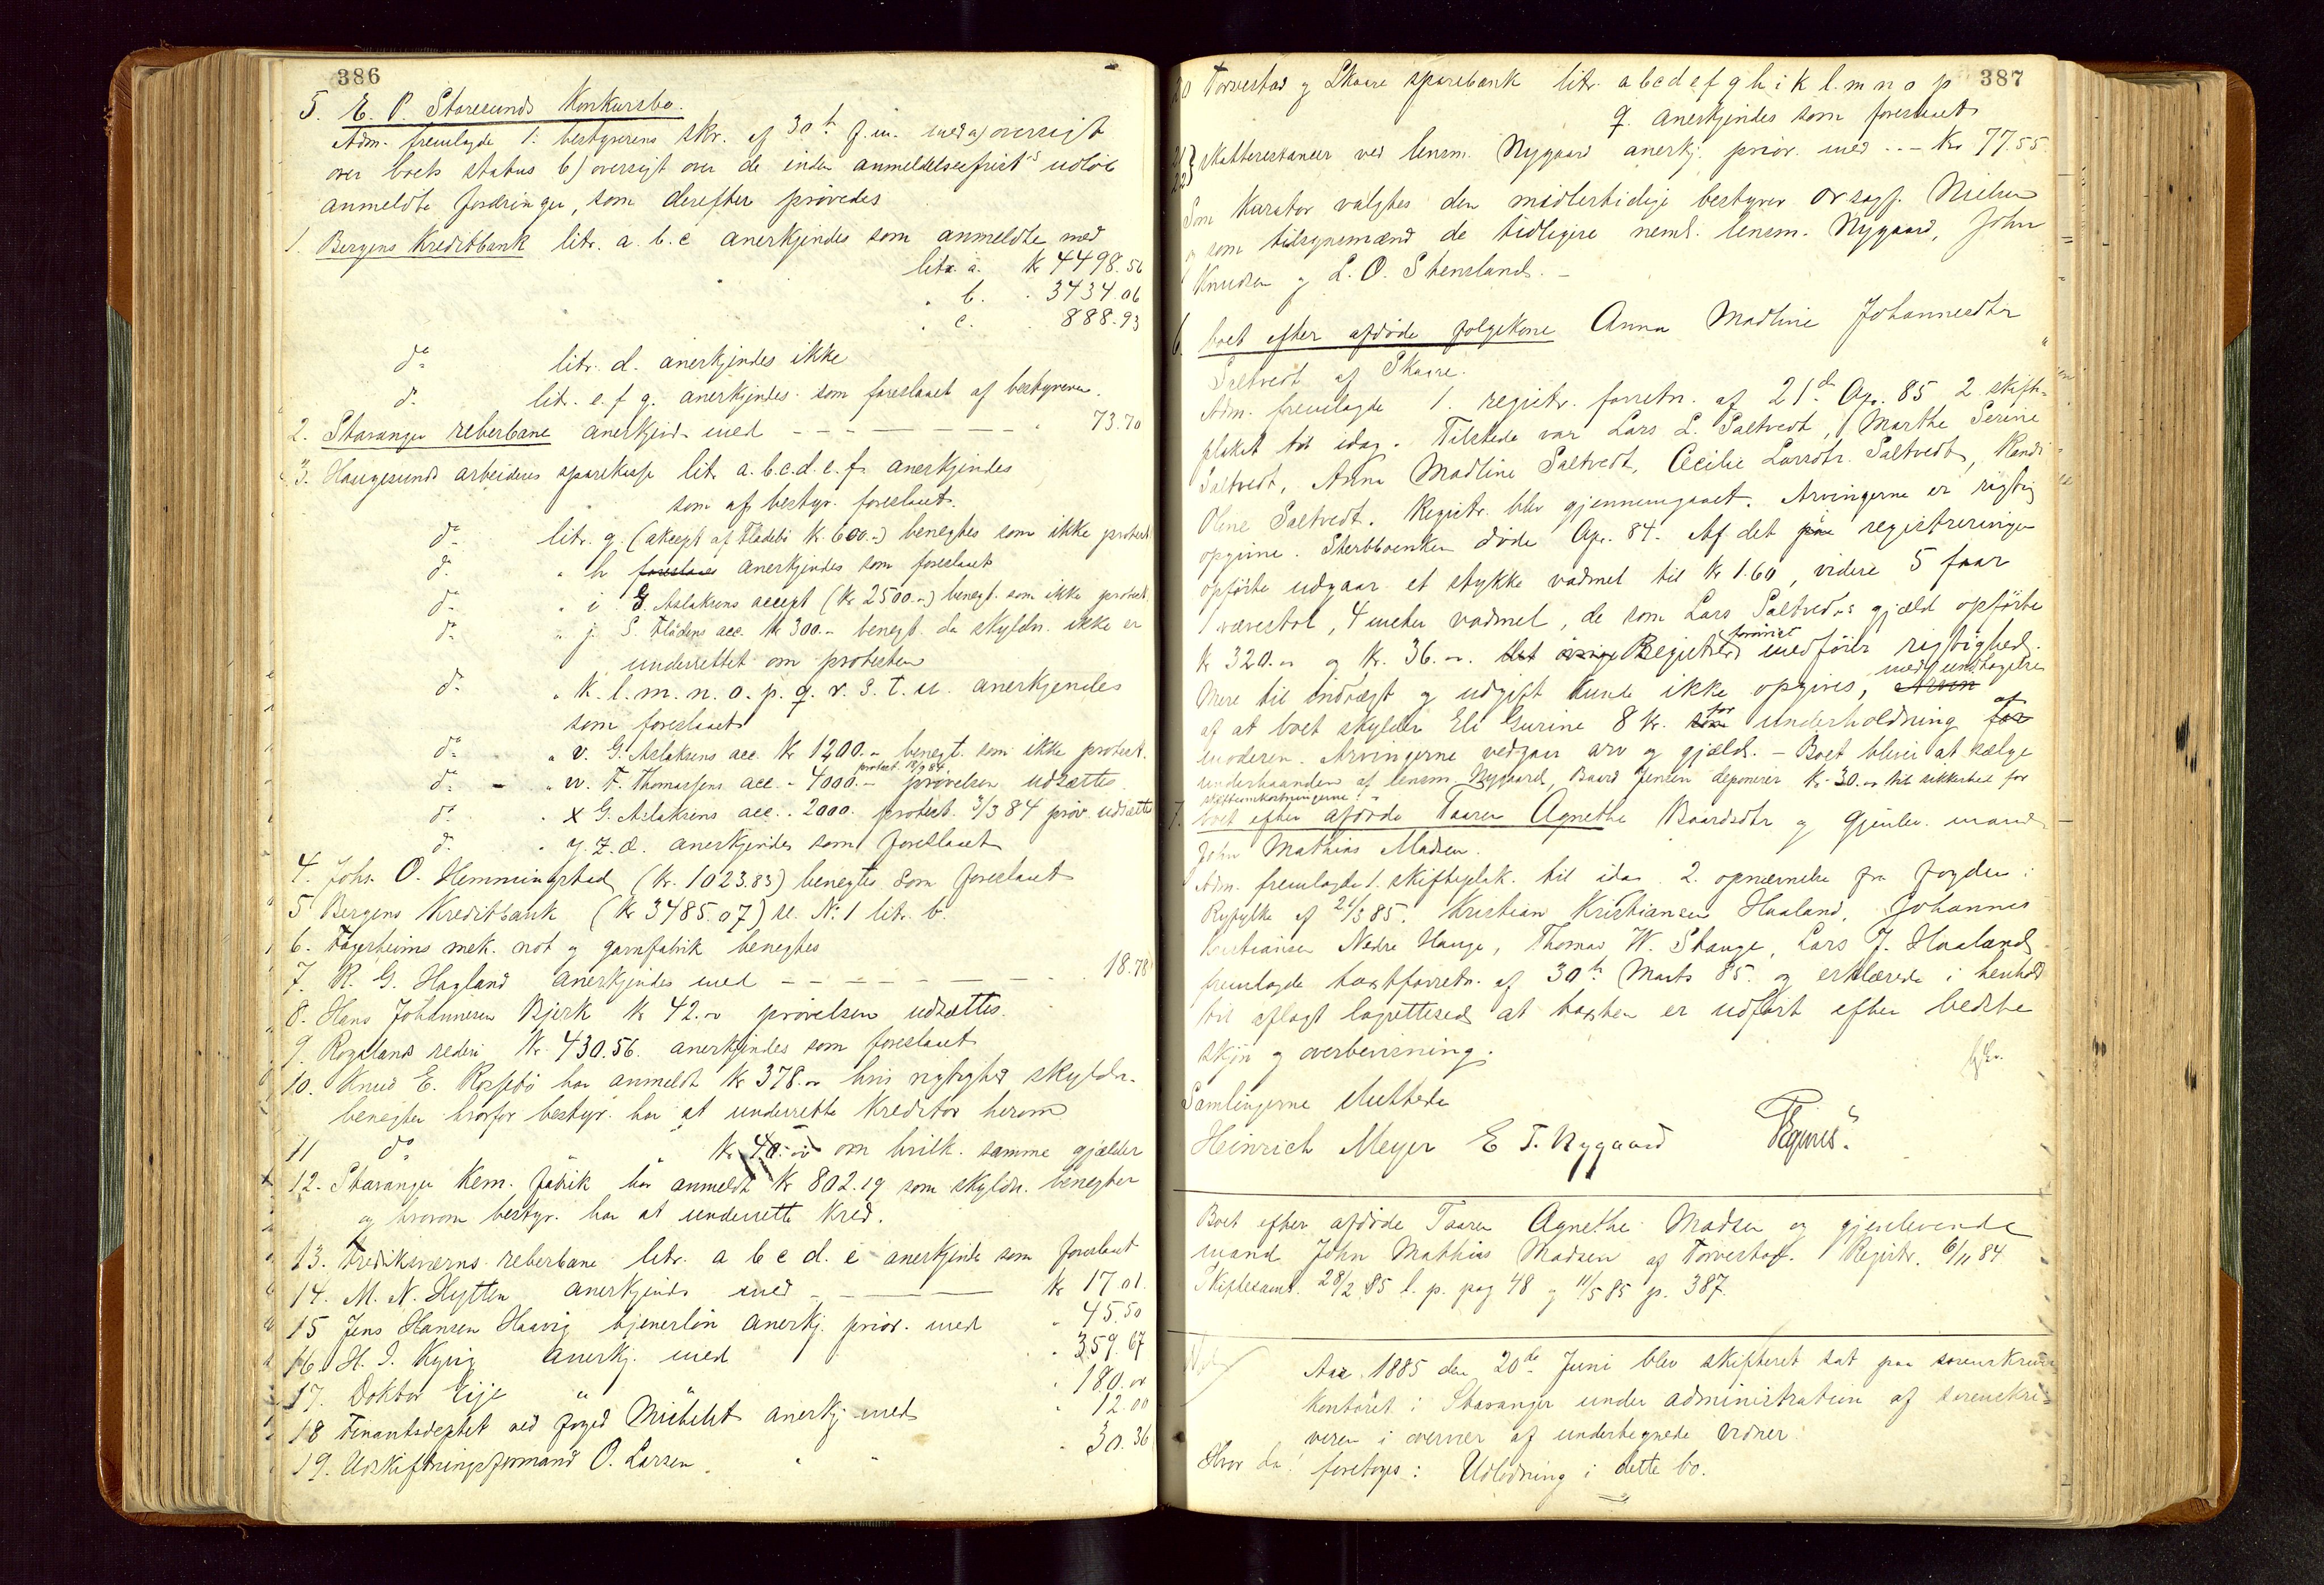 386
5. E. P. Staresunds Konkursbo.
Adm. fremlagde 1. bestyrerens skr. af 30te f.m. med a) oversigt
over boets status b) oversigt over de inden anmeldelsesfristens udløb
anmeldte fordringer, som derefter prøvedes
1. Bergens Kreditbank litr. a. b. c anerkjendes som anmeldte med
litr. a. Kr 4498.56
" b. " 3434.06
" c. 888.93
do litr. d. anerkjendes ikke
do litr. e. f g. anerkjendes som foreslaaet af bestyreren.
2. Stavanger reberbane anerkjend. med - - - - - " 73.70
3. Haugesunds arbeideres sparekasse litr. a. b. c. d. e. f. anerkjendes
som af bestyr. foreslaaet.
do litr. g. (akcept af Fladebö kr. 600.-) benegtes som ikke protest.
do " h foreslaaes anerkjendes som foreslaaet
do " i G. Aslaksens accept (kr 2500.-) benegt. som ikke protest.
do " j. S. Flådens acc. kr 300.- benegt. da skyldn. ikke er
underrettet om protesten
do " k. l. m. n. o. p. q. r. s. t. u. anerkjendes
som foreslaaet
do " v. G. Aslaksens acc. kr 1200.- benegt. som ikke protest.
do - " w. F. Thomassens acc. - 4000.- protest. 12/9 84 prøvelsen udsættes
do " x G. Aslaksens acc. . 2000. protest. 3/3 84 prøv. udsættes
do " y. z. æ. anerkjendes som foreslaaet
4. Johs. O. Hemmingstad (kr. 1023.83) benegtes som foreslaaet
5 Bergens Kreditbank (kr 3485.07) se No 1 litr. b.
6. Fagerheims mek. not og garnfabrik benegtes
7. R. G. Hagland anerkjendes med - - - - - - 18.78
8. Hans Johannesen Bjerk kr 42.- prøvelsen udsættes.
9. Rogalands rederi kr. 430.56. anerkjendes som foreslaaet
10. Knud E. Rossebö har anmeldt kr 378.- hvis rigtighed skyldn.
benegter hvorfor bestyr. har at underrette kreditor herom
11 do " kr. 40.- om hvilk. samme gjælder
12. Stavanger kem. fabrik har anmeldt kr 802.19 som skyldn. benegter
og hvorom bestyr. har at underrette kred.
13. Frediksværns reberbane litr. a b c d. e anerkjendes som foreslaaet
14. M. N. Hytten anerkjendes med - - - kr 17.01.
15 Jens Hansen Haavig tjenerløn anerkj. prior. med " 45.50
16. H. I. Kyvig anerkj. med " 359.67
17. Doktor Eije " " 180.-
18 Finantsdeptet ved foged Michelet anerkj. med " 12.00
19. Udskiftningsformand O. Larsen " " " 30.36
387
20 Torvestad og Skaare sparebank litr. a b c d e f g h i k l. m n o p
q. anerkjendes som foreslaaet
21 22 } skatterestancer ved lensm. Nygaard anerkj. prior. med - - - Kr 77.55.
Som Kurator valgtes den midlertidige bestyrer orsagf. Nielsen
og som tilsynsmænd de tidligere neml. lensm. Nygaard, John
Knudsen og L. O. Stensland. -
6. boet efter afdøde folgekone Anna Madline Johannesdtr
Saltvedt af Skaare.
Adm. fremlagde 1. registr. forretn. af 21de Apr. 85 2. skifte-
plakat til idag. Tilstede var Lars L. Saltvedt, Marthe Serine
Saltvedt, Anna Madline Saltvedt, Cecilie Larsdtr. Saltvedt, Randi
Oline Saltvedt. Registr. blev gjennemgaaet. Arvingerne er rigtig
opgivne. Sterbboenken døde Apr. 84. Af det paa registreringen
opførte udgaar et stykke vadmel til kr 1.60, videre 5 faar
1 vævestol, 4 meter vadmel, de som Lars Saltvedts gjæld opførte
kr 320.- og kr. 36.-. Det øvrige Registreret forøvrigt medfører rigtighed.
Mere til indtægt og udgift kunde ikke opgives, Arvin med undtagelse
af at boet skylder Eli Gurine 8 kr. som for underholdning for af
moderen. Arvingerne vedgaar arv og gjæld. - Boet bliver at sælge
underhaanden af lensm. Nygaard, Baard Jensen deponerer kr. 30.- til sikkerhed for
skifteomkostningerne. -
7. boet efter afdøde Taaren Agnethe Baardsdtr og gjenlev. mand
John Mathias Madsen.
Adm. fremlagde 1. skifteplak. til idag 2. opnævnelse fra fogden i
Ryfylke af 21/3 85. Kristian Kristiansen Haaland, Johannes
Kristiansen Nedre Hauge, Thomas W. Stange, Lars J. Haaland
fremlagde taxtforretn. af 30te Marts 85. og erklærede i henhold
til aflagt lagrettesed at taxten er udført efter bedste
skjøn og overbevisning.
Samlingerne sluttede
Heinrich Meyer E T. Nygaard
Boet efter afdøde Taaren Agnethe Madsen og gjenlevende
mand John Mathias Madsen af Torvestad. Registr. 6/11 84
Skiftesaml. 28/2 85 l. p. pag 48 og 11/5 85 p. 387.
Aar 1885 den 20de Juni blev skifteret sat paa sorenskriver
kontoret i Stavanger under administration af sorenskri-
veren i overvær af undertegnede vidner.
Hvor da! foretoges: Udlodning i dette bo.